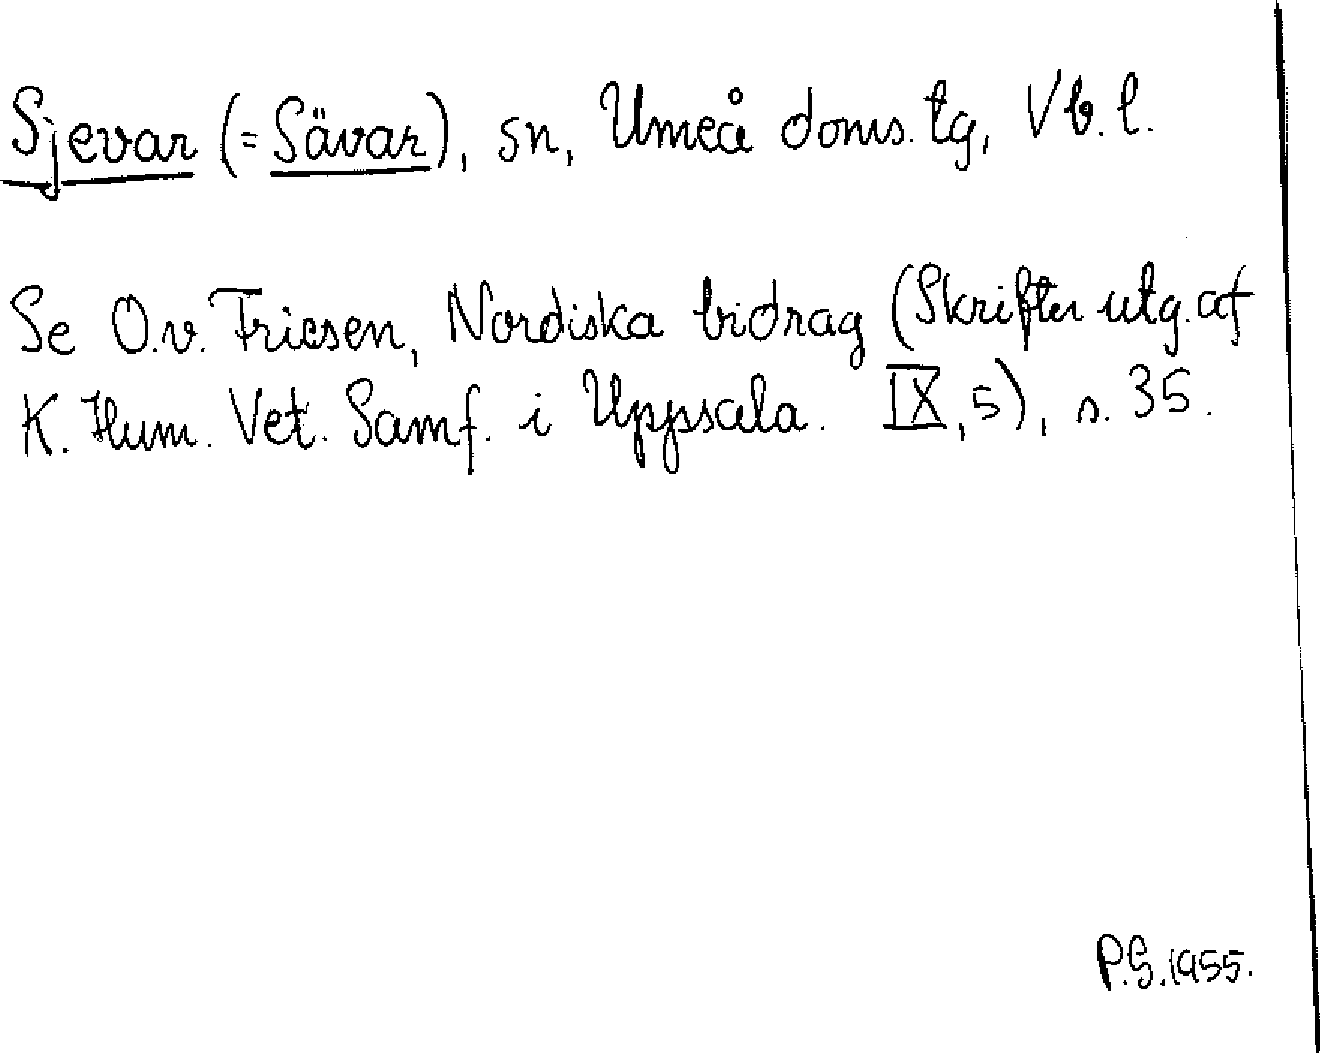 Sjevar (= Sävar), sn, Umeå doms. tg, Vb. l.
Se O. v. Friesen, Nordiska bidrag (Skrifter utg. af
K. Hum. Vet. Samf. i Uppsala. IX, 5), s. 35.
P.G. 1955.